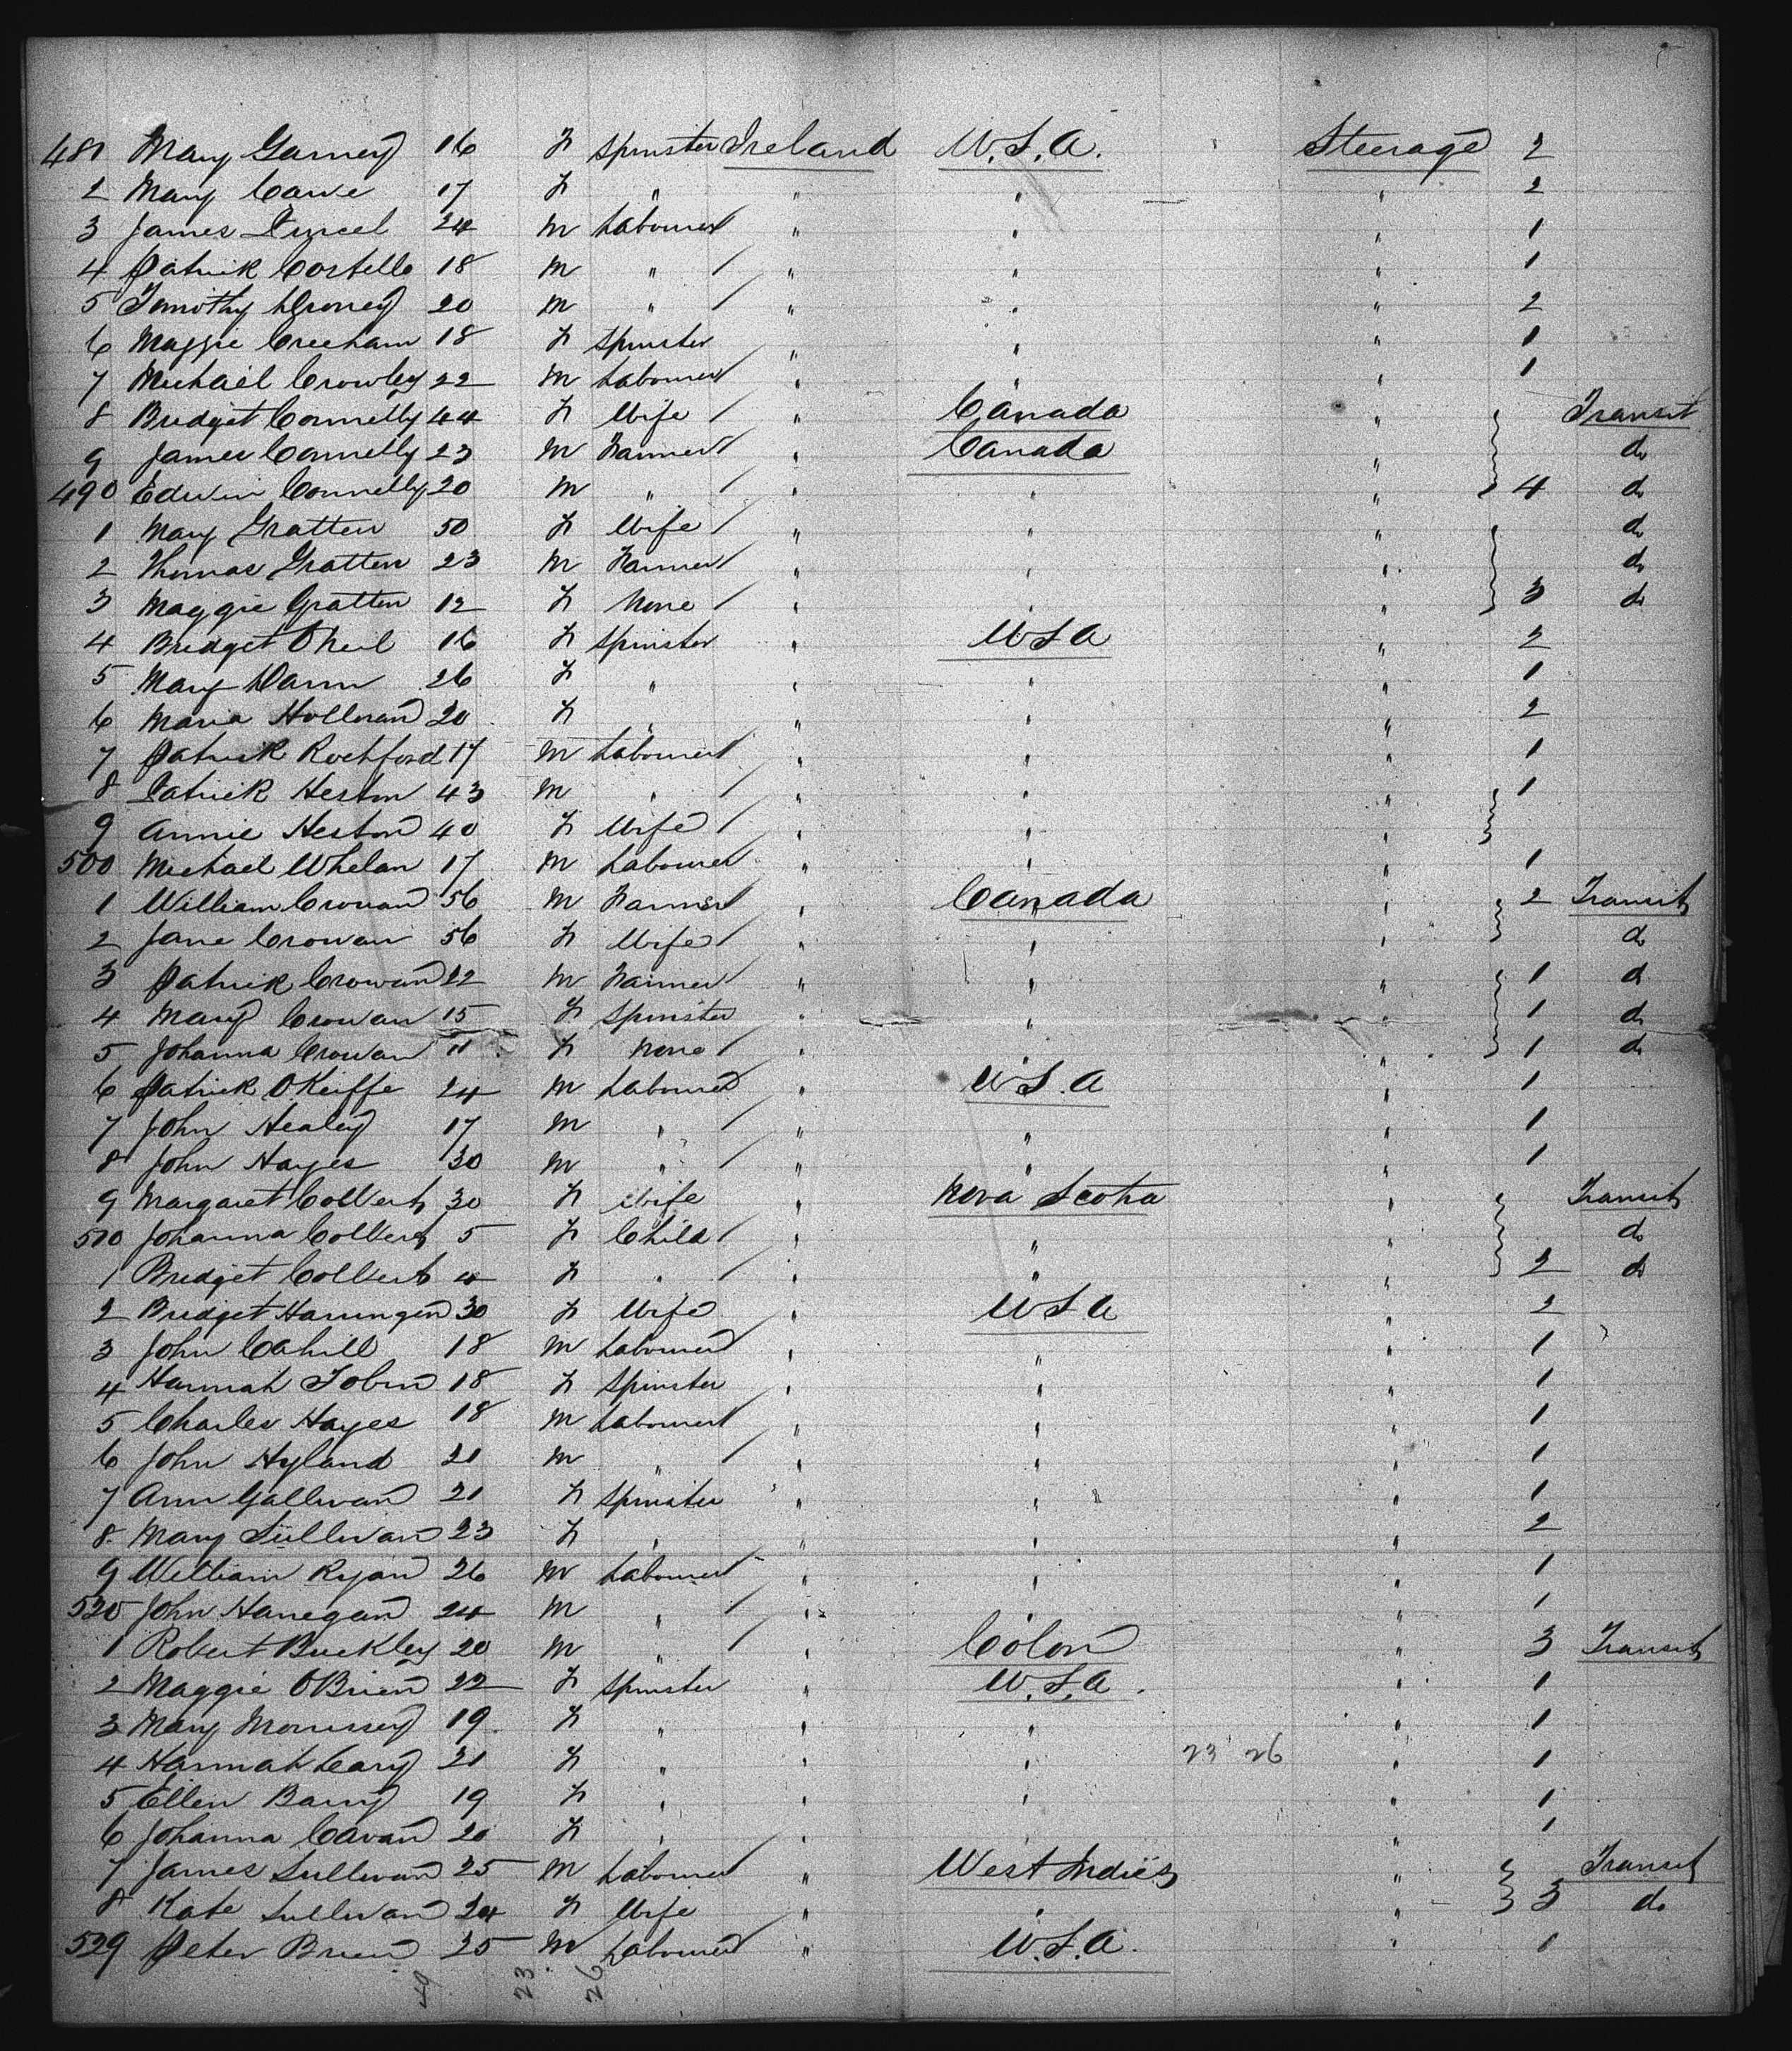 481 Mary Garney 16 F Spinster Ireland U.S.A. Steerage 2
2 Mary Carve 17 F " " " " 2
3 James Purcel 24 M Labourer " " " 1
4 Patrick Costello 18 M " " " " 1
5 Timothy Droney 20 M " " " " 2
6 Maggie Creeham 18 F Spinster " " " 1
7 Michael Crowley 22 M Labourer " " " 1
8 Bridget Connelly 44 F Wife " Canada " Transit
9 James Connelly 23 M Farmer " Canada " do
490 Edwin Connelly 20 M " " " " 4 do
1 Mary Gratten 50 F Wife " " " do
2 Thomas Gratten 23 M Farmer " " " do
3 Maggie Gratten 12 F None " " " 3 do
4 Bridget O'Neil 16 F Spinster " U S A " 2
5 Mary Dann 26 F " " " " 1
6 Maria Holleran 20 F " " " " 2
7 Patrick Rochford 17 M Labourer " " " 1
8 Patrick Heston 43 M " " " " 1
9 Annie Heston 40 F Wife " " "
500 Michael Whelan 17 M Labourer " " " 1
1 William Crowan 56 M Farmer " Canada " 2 Transit
2 Jane Crowan 56 F Wife " " " do
3 Patrick Crowan 22 M Farmer " " " 1 do
4 Mary Crowan 15 F Spinster " " " 1 do
5 Johanna Crowan 11 F None " " " 1 do
6 Patrick O'Keiffe 24 M Labourer " U S.A " 1
7 John Healey 17 M " " " " 1
8 John Hayes 30 M " " " " 1
9 Margaret Colbert 30 F Wife " Nova Scotia " Transit
510 Johanna Colbert 5 F Child " " " do
1 Bridget Colbert 4 F " " " " 2 do
2 Bridget Hannigen 30 F Wife " U S A " 2
3 John Cahill 18 M Labourer " " " 1
4 Hannah Tobin 18 F Spinster " " " 1
5 Charles Hayes 18 M Labourer " " " 1
6 John Hyland 21 M " " " " 1
7 Ann Gallivan 21 F Spinster " " " 1
8 Mary Sullivan 23 F " " " " 2
9 William Ryan 26 M Labourer " " " 1
520 John Hanegan 24 M " " " " 1
1 Robert Buckley 20 M " " Colon " 3 Transit
2 Maggie O'Brien 22 F Spinster " U.S.A. " 1
3 Mary Morrissey 19 F " " " " 1
4 Hannah Cary 21 F " " " 23 26 " 1
5 Ellen Barry 19 F " " " " 1
6 Johanna Cavan 20 F " " " " 1
7 James Sullivan 25 M Labourer " West Indies " Transit
8 Kate Sullivan 24 F Wife " " " 3 do
529 Peter Brien 25 M Labourer " U.S.A. " 1
49 23 26